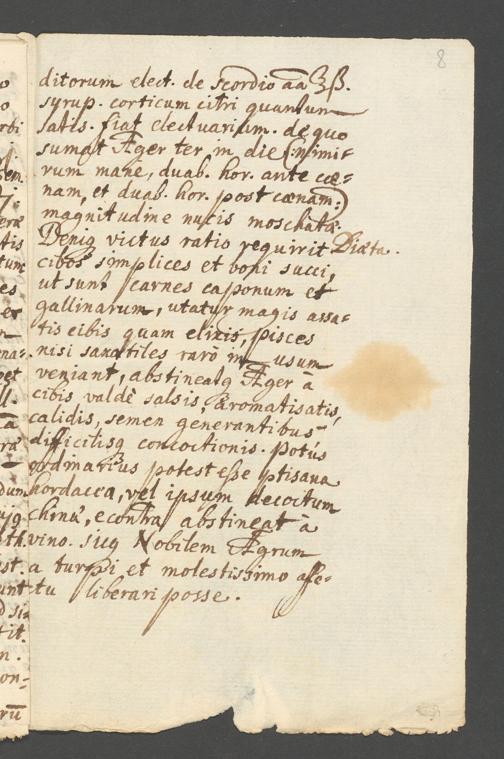 8
ditorum elect. de scordio aa ℥ß.
syrup. corticum citri quantum
satis. fiat electuarium. de quo
sumat Æger ter in die (nimi=
rum mane, duab. hor. ante cœ=
nam, et duab. hor. post cœnam:)
magnitudine nucis moschatæ.
Deniq victus ratio requirit Diæta.
cibos simplices et boni succi,
ut sunt carnes caponum et
gallinarum, utatur magis assa=
tis cibis quam elixis, pisces
nisi saxatiles rarò in usum
veniant, abstineatq Æger à
cibis valdè salsis, aromatisatis,
calidis, semen generantibus
difficilisq concoctionis. potús
ordinarius potest esse ptisana
hordacea, vel ipsum decoctum
chinæ, econtra abstineat à
vino. sicq Nobilem Ægrum
a turpi et molestissimo affe=
ctu liberari posse.